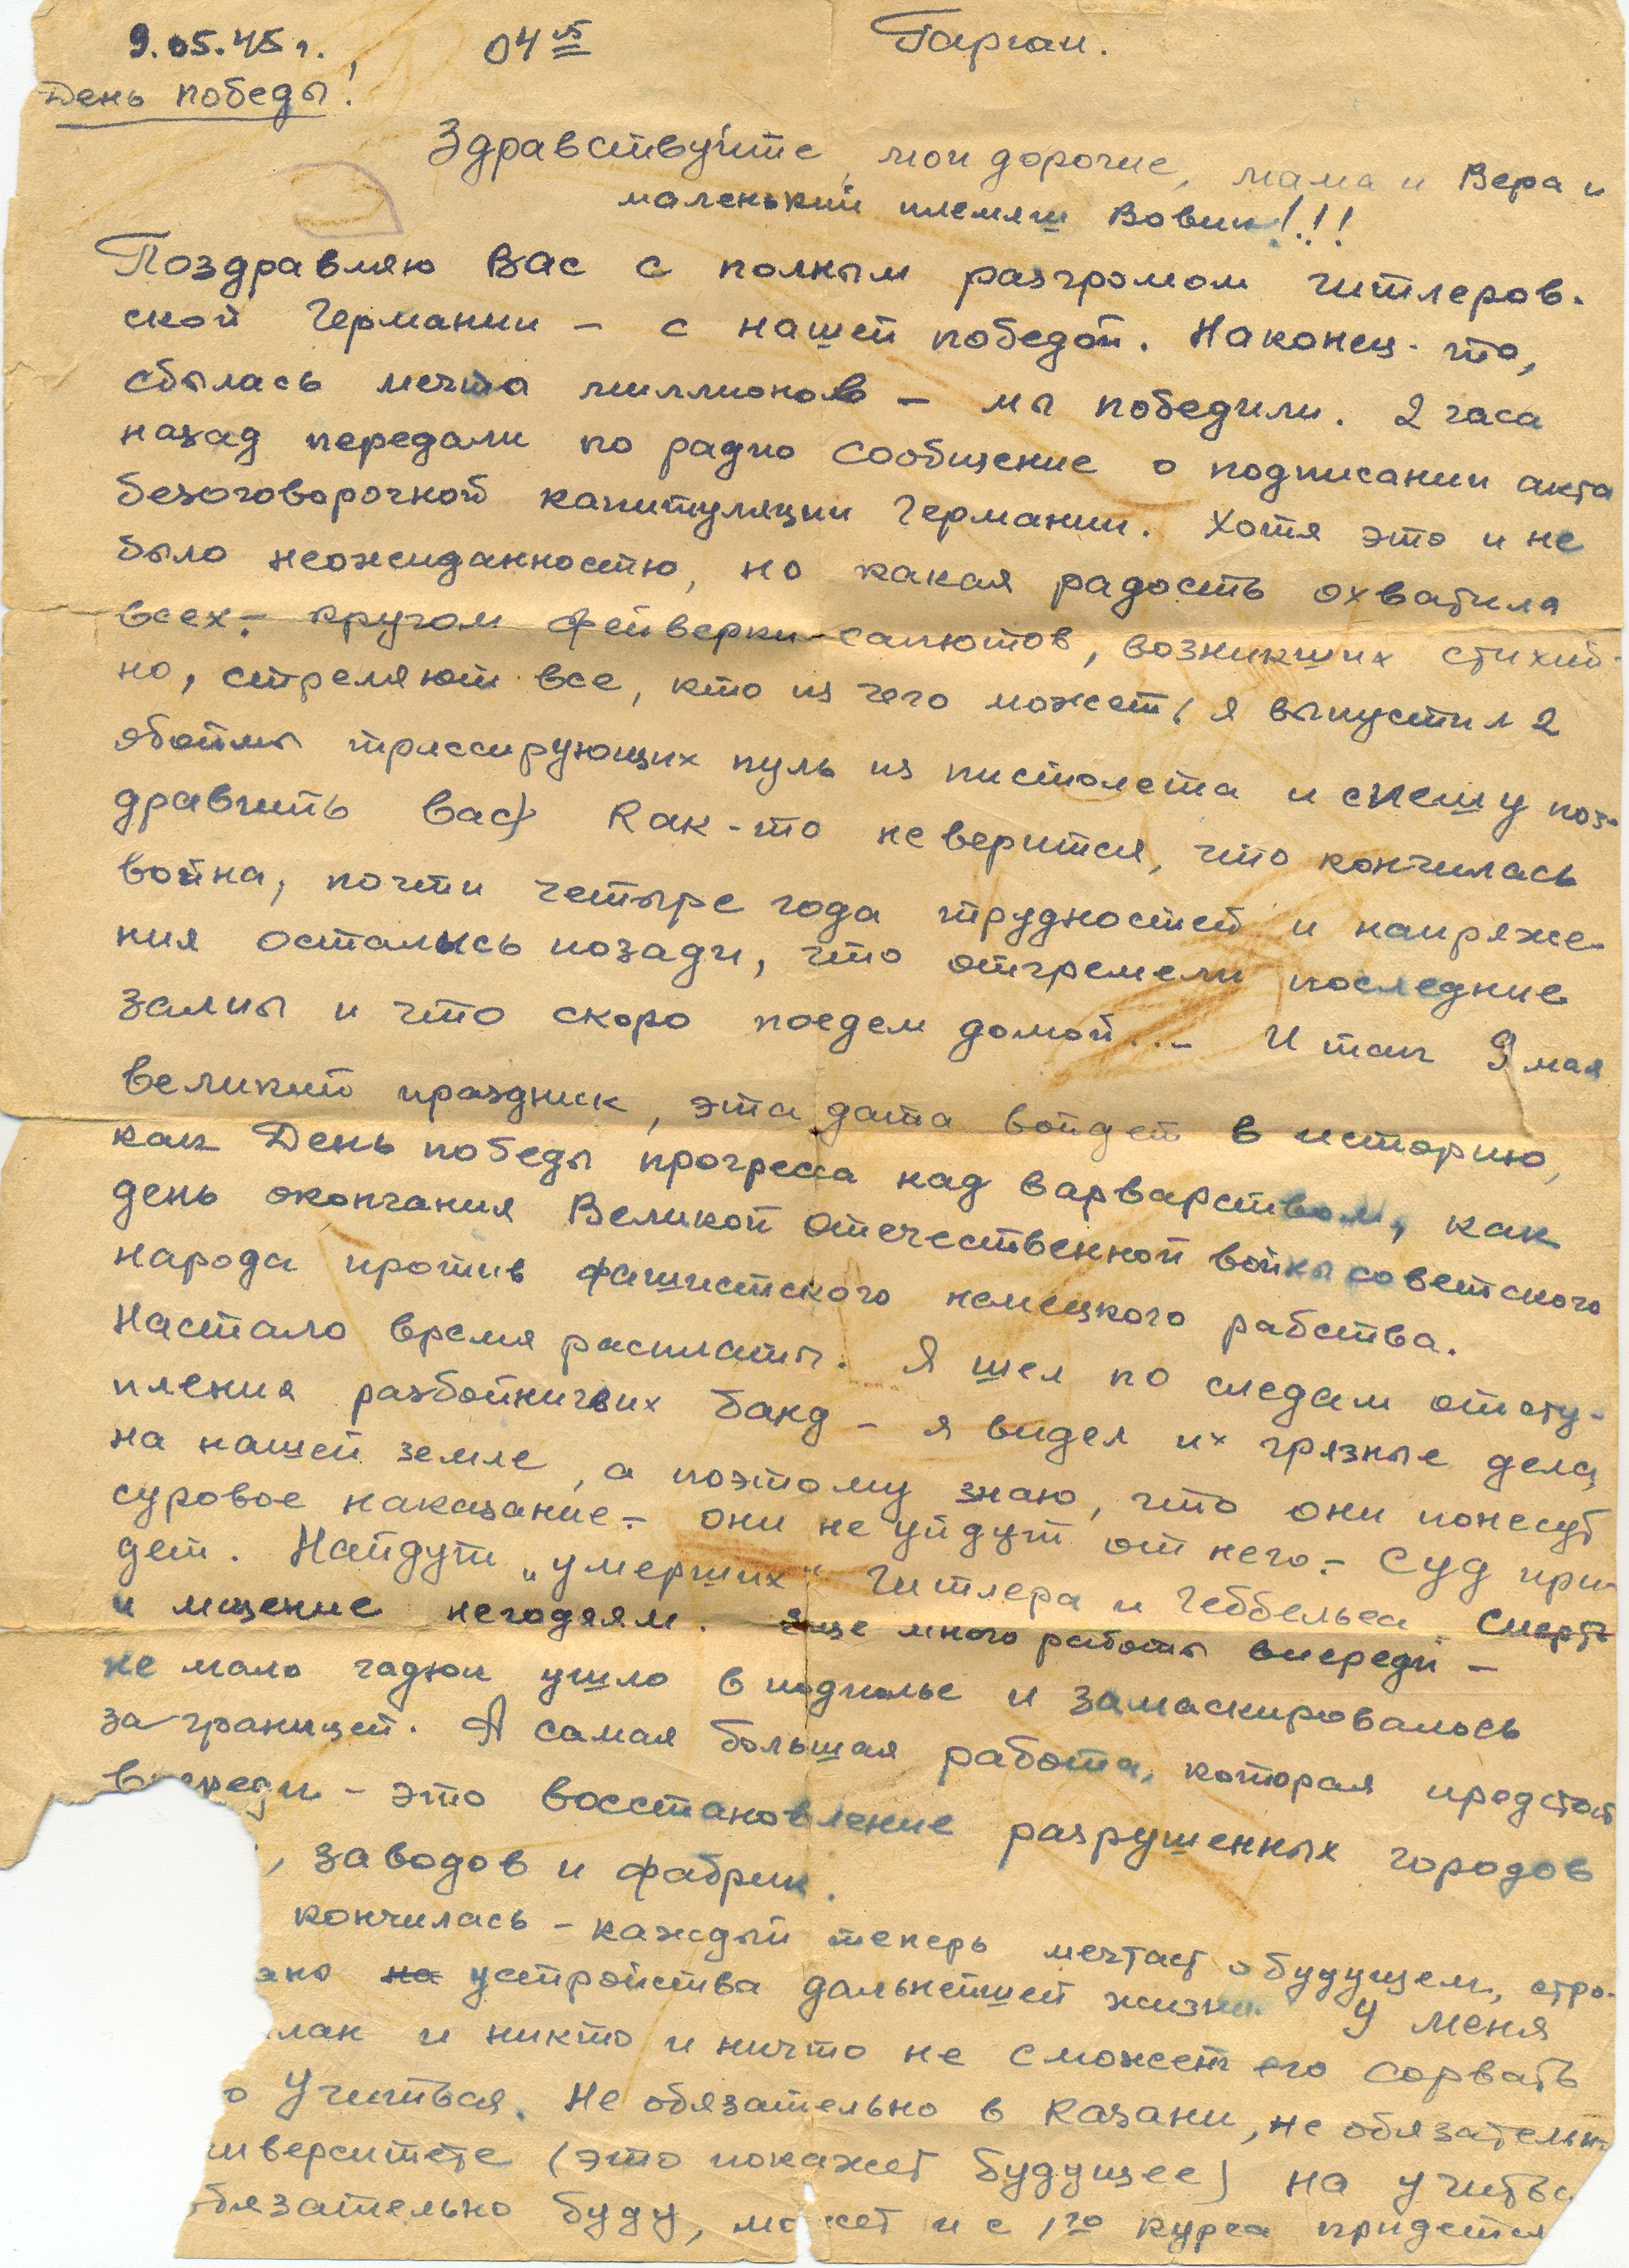 9.05.45 г., 04 15 Тарган.
День победы!
Здравствуйте, мои дорогие, мама и Вера и
маленький племяш Вовик!!!
Поздравляю Вас с полным разгромом гитлеров-
ской Германии – с нашей победой. Наконец-то,
сбылась мечта миллионов – мы победили. 2 часа
назад передали по радио сообщение о подписании акта
безоговорочной капитуляции Германии. Хотя это и не
было неожиданностью, но какая радость охватила
всех – кругом фейверки-салютов, возникших стихий-
но, стреляют все, кто из чего может, (я выпустил 2
обоймы трассирующих пуль из пистолета и спешу поз-
дравить вас). Как-то не верится, что кончилась
война, почти четыре года трудностей и напряже-
ния остались позади, что отгремели последние
залпы и что скоро поедем домой... Итак 9 мая
великий праздник, эта дата войдет в историю,
как День победы прогресса над варварством, как
день окончания Великой отечественной войны советского
народа против фашистского немецкого рабства.
Настало время расплаты. Я шел по следам отсту-
пления разбойничьих банд – я видел их грязные дела
на нашей земле, а поэтому знаю, что они понесут
суровое наказание – они не уйдут от него – суд при-
дет. Найдут „умерших" Гитлера и Геббельса. Смерть
и мщение негодяям. Еще много работы впереди –
не мало гадюк ушло в подполье и замаскировалось
за границей. А самая большая работа, которая предстоит
впереди – это восстановление разрушенных городов
, заводов и фабрик.
кончилась – каждый теперь мечтает о будущем, стро-
но на устройства дальнейшей жизни. У меня
план и никто и ничто не сможет его сорвать
о учиться. Не обязательно в Казани, не обязательно
иверситете (это покажет будущее) на учитьс
бязательно буду, может и с 1го курса придется